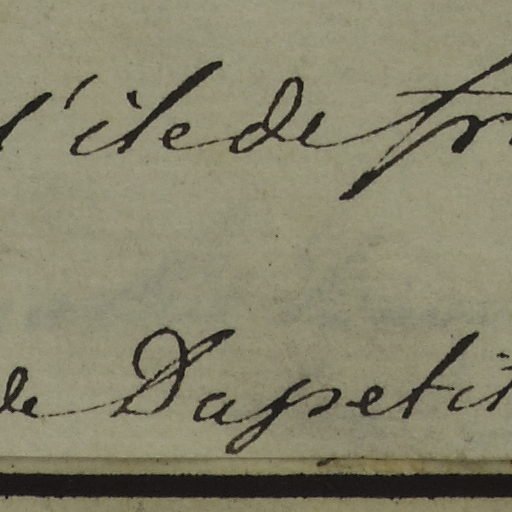 l'ile de fr
de Dapetit